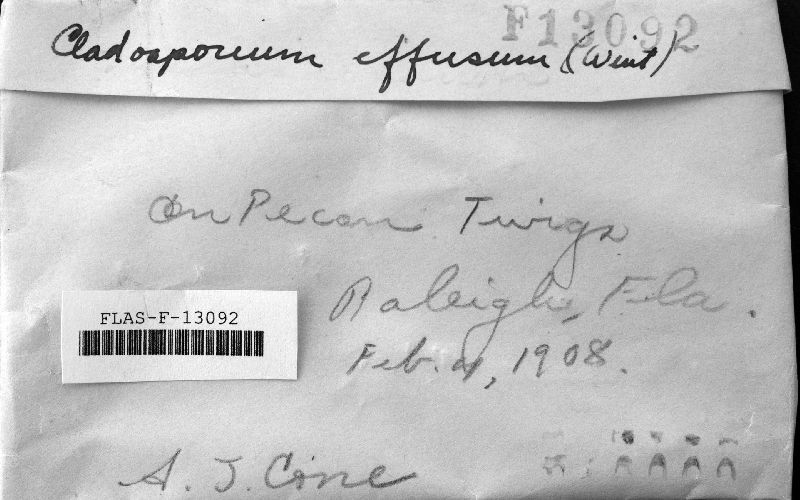 F13092
Cladosporium effusum (Wint)
On Pecan Twigs
Raleigh, Fla.
FLAS-F-13092
Feb. 4, 1908.
A. J. Cone